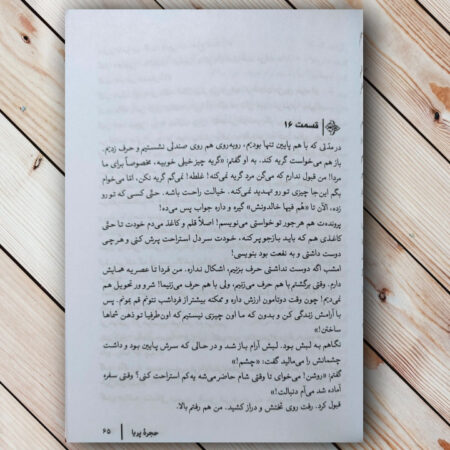 قسمت ۱۶
در مدتی که با هم پایین تنها بودیم، روبه‌روی هم روی صندلی نشستیم و حرف زدیم.
باز هم می‌خواست گریه کند. به او گفتم: «گریه چیز خیلی خوبیه، مخصوصاً برای ما
مردا! من قبول ندارم که می‌گن مرد گریه نمی‌کنه! غلطه! نمی‌گم گریه نکن، امّا می‌خوام
بگم این‌جا چیزی تو رو تهدید نمی‌کنه. خیالت راحت باشه. حتّی کسی که تو رو
زده، الآن تا «هُم فیها خالدونش» گیره و داره جواب پس می‌ده!
پرونده‌ت هم هر جور تو خواستی می‌نویسم! اصلاً قلم و کاغذ می‌دم خودت تا حتّی
کاغذی هم که باید بازجو پر کنه، خودت سر دل استراحت پرش کنی و هر چی
دوست داشتی و به نفعت بود بنویس!
امشب اگه دوست نداشتی حرف بزنیم، اشکال نداره. من فردا تا عصر یه همایش
دارم. وقتی برگشتم با هم حرف می‌زنیم، ولی با هم حرف می‌زنیم! شر و ور تحویل هم
نمی‌دیم! چون وقت دوتامون ارزش داره و ممکنه بیشتر از فرداشب نتونم قم بمونم. پس
با آرامش زندگی کن و بدون که ما اون چیزی نیستیم که اون‌طرفیا تو ذهن شماها
ساختن!»
نگاهم به لبش بود. لبش آرام باز شد و در حالی که سرش پایین بود و داشت
چشمانش را می‌مالید گفت: «چشم!»
گفتم: «روشن! می‌خوای تا وقتی شام حاضر می‌شه یه‌کم استراحت کنی؟ وقتی سفره
آماده شد می‌آم دنبالت!»
قبول کرد. رفت روی تختش و دراز کشید. من هم رفتم بالا.
حجرهٔ پریا | ۶۵